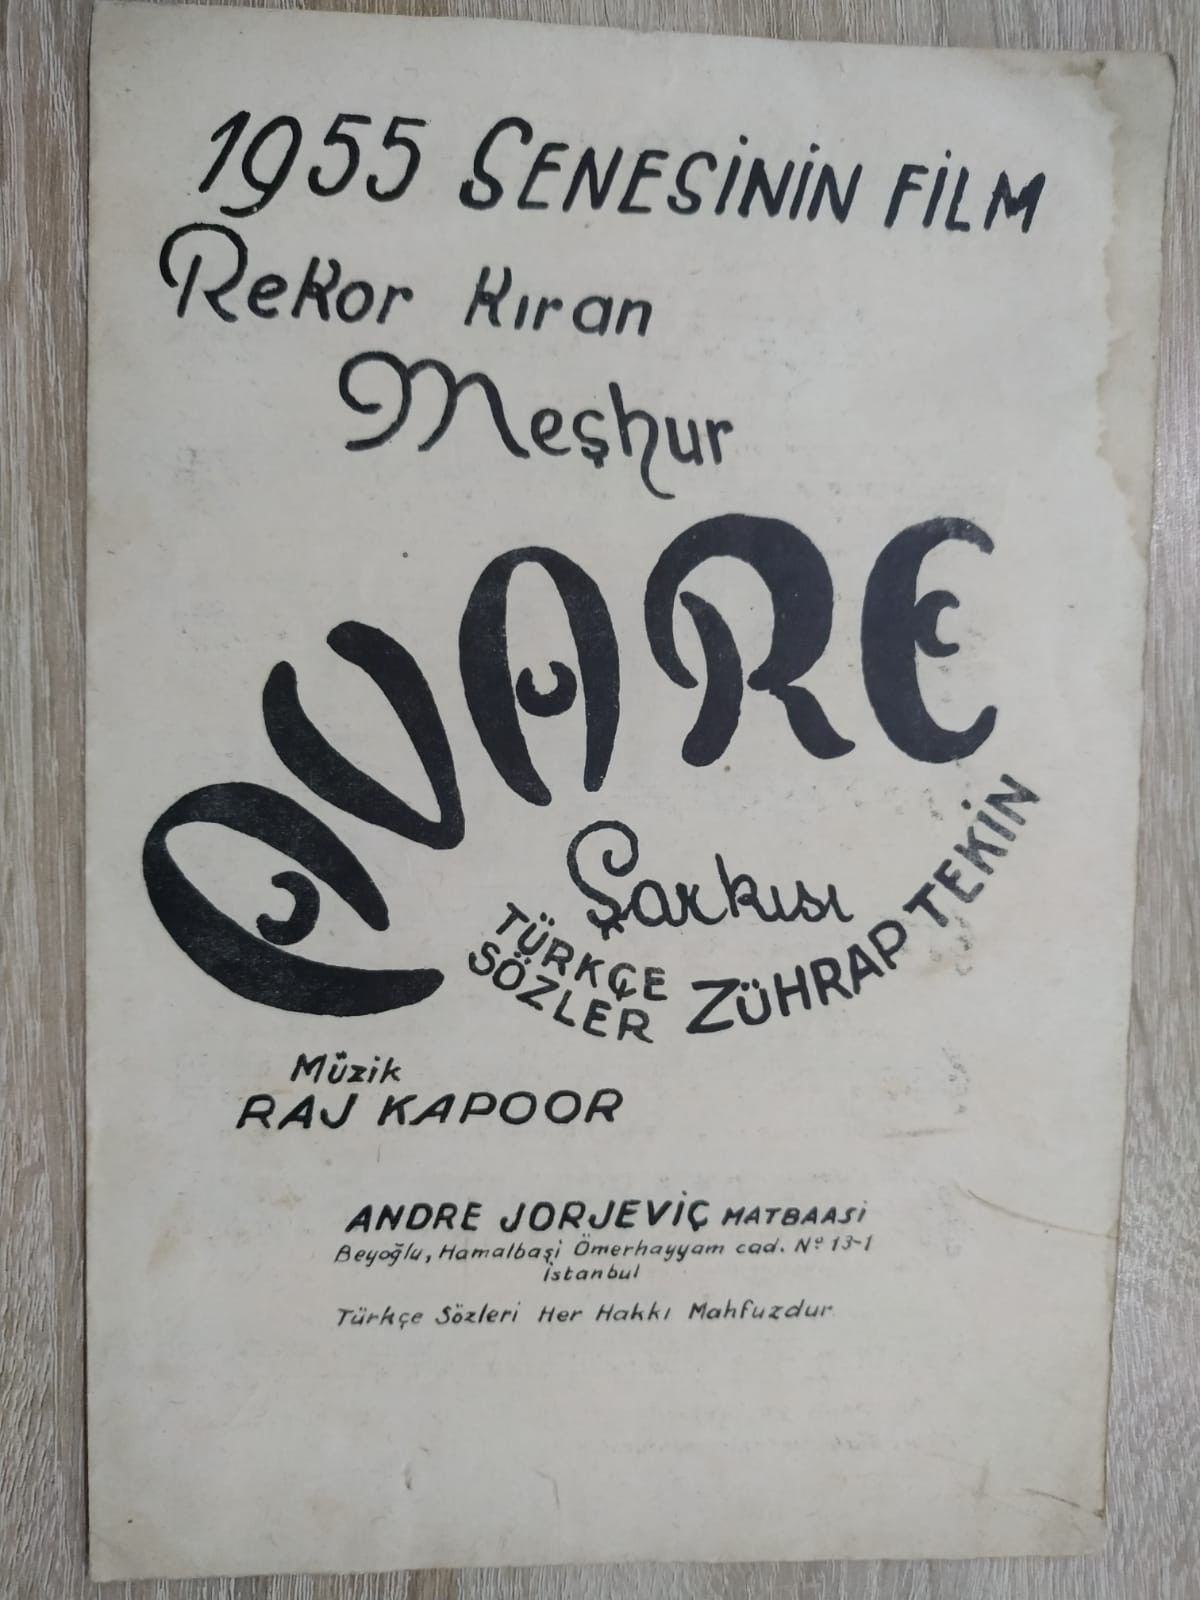 1955 SENESİNİN FİLM
Rekor Kıran
Meşhur
AVARE
Şarkısı
TÜRKÇE
SÖZLER
ZÜHRAP TEKİN
Müzik
RAJ KAPOOR
ANDRE JORJEVİÇ MATBAASİ
Beyoğlu, Hamalbaşi Ömerhayyam cad. Nº 13-1
İstanbul
Türkçe Sözleri Her Hakkı Mahfuzdur